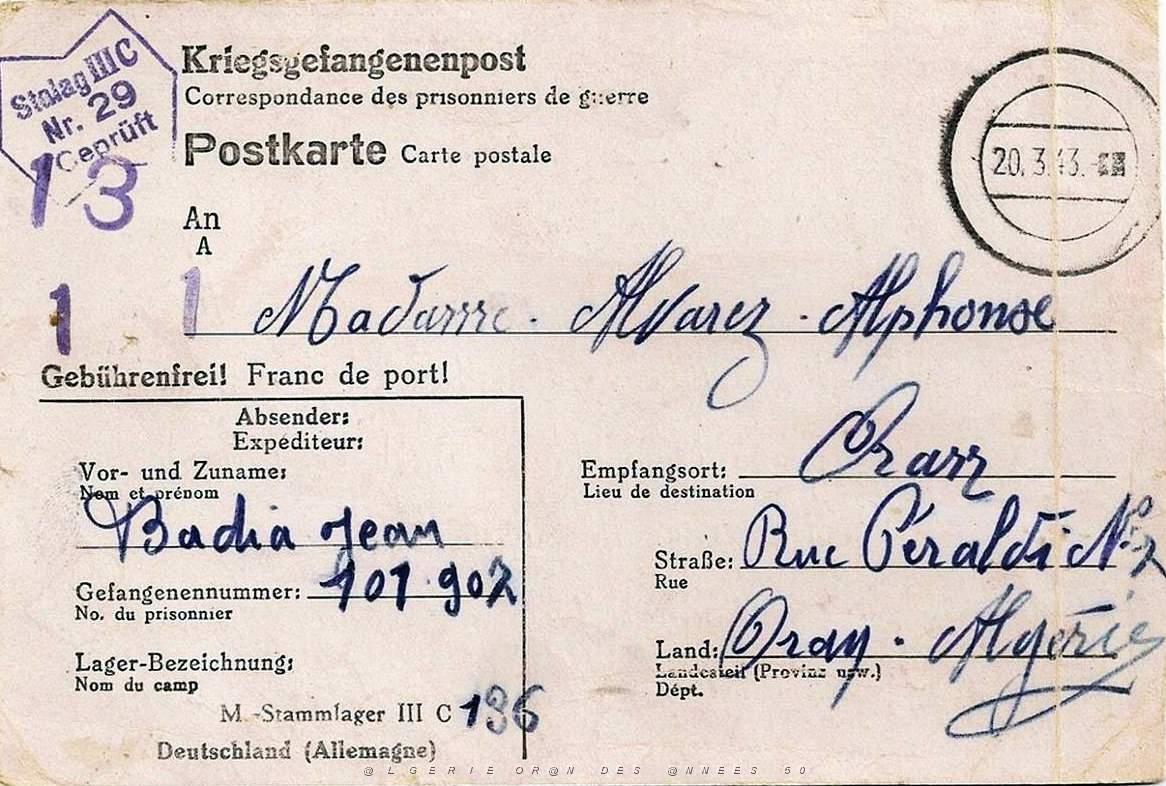 Stalag III C
Nr. 29
Geprüft
13
Kriegsgefangenenpost
Correspondance des prisonniers de guerre
Postkarte Carte postale
20. 3. 43.
An
A
1 1 Madame. Alvarez. Alphonse
Gebührenfrei! Franc de port!
Absender:
Expéditeur:
Vor- und Zuname:
Nom et prénom
Badia Jean
Gefangenennummer: 101.902
No. du prisonnier
Lager-Bezeichnung:
Nom du camp
M.-Stammlager III C 136
Deutschland (Allemagne)
Empfangsort: Oran
Lieu de destination
Straße: Rue Péraldi No 2
Rue
Land: Oran. Algérie
Landesteil (Provinz usw.)
Dépt.
@LGERIE OR@N DES @NNEES 50